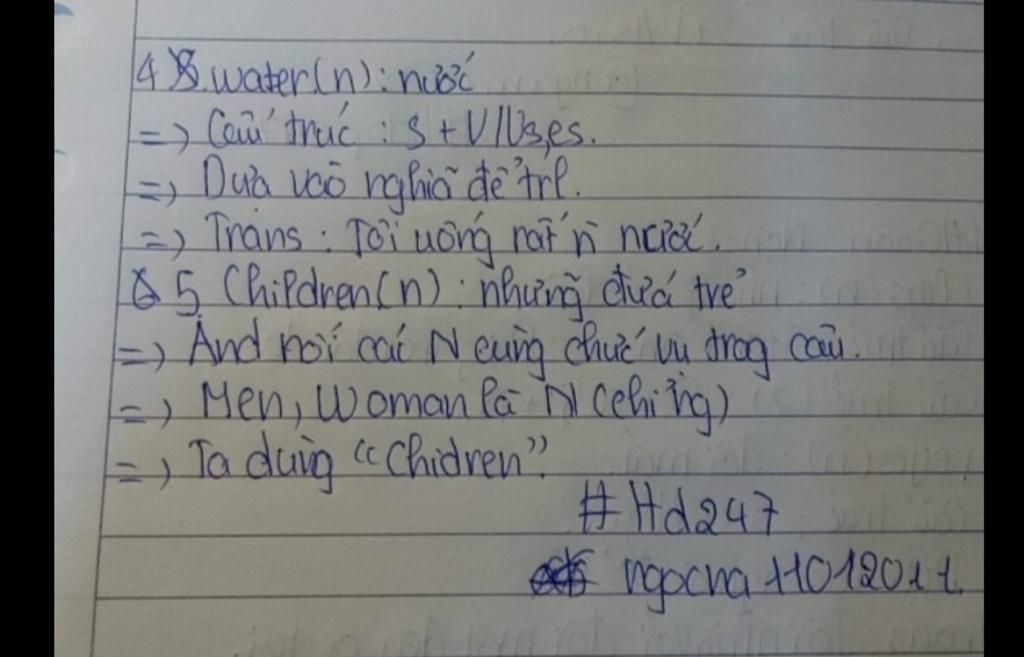 4. water(n): nước
=> Cấu trúc : S + V/Vs,es.
=> Dựa vào nghĩa để trl.
=> Trans : Tôi uống rất n̄ nước.
5. Children(n) : những đứa trẻ
=> And nối các N cùng chức vụ trog câu.
=> Men, Woman là N (chỉ ng)
=> Ta dùng "Chidren".
#Hd247
ngocna11012011.